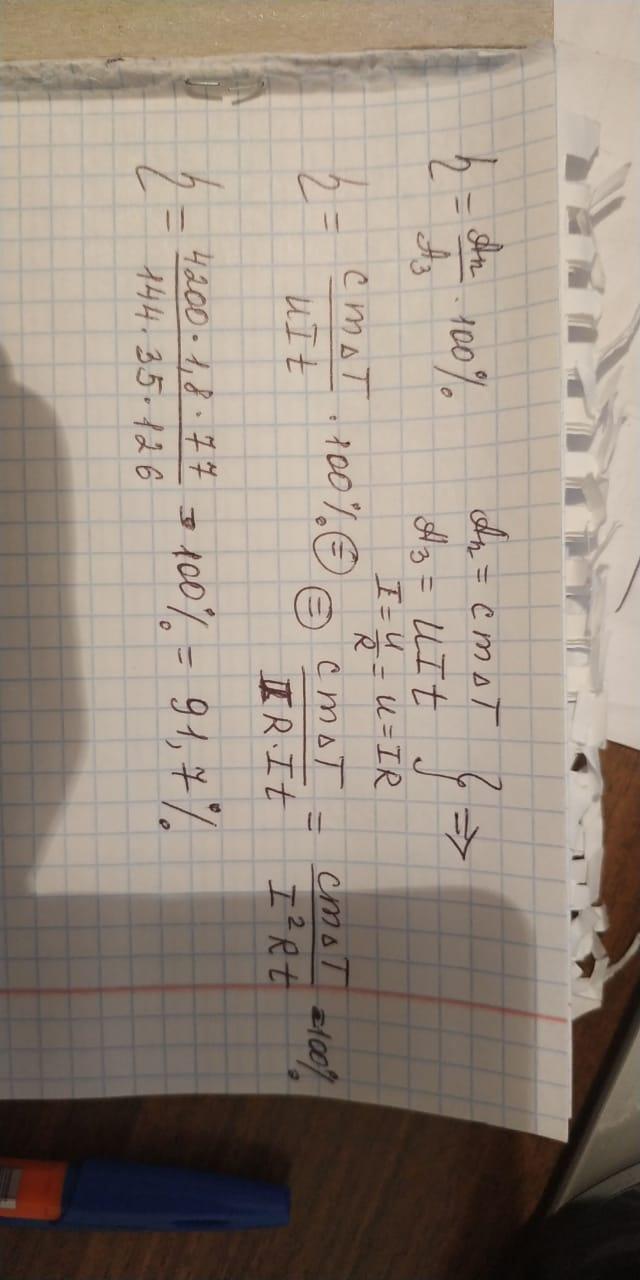 η = Aп/Aз · 100%
Aп = cm∆T
Aз = UIt } ⇒
I = U/R = U = IR
η = cm∆T/UIt · 100% ⊜
⊜ cm∆T/IR·It = cm∆T/I²Rt = 100%
η = 4200·1,8·77/144·35·126 = 100% = 91,7%